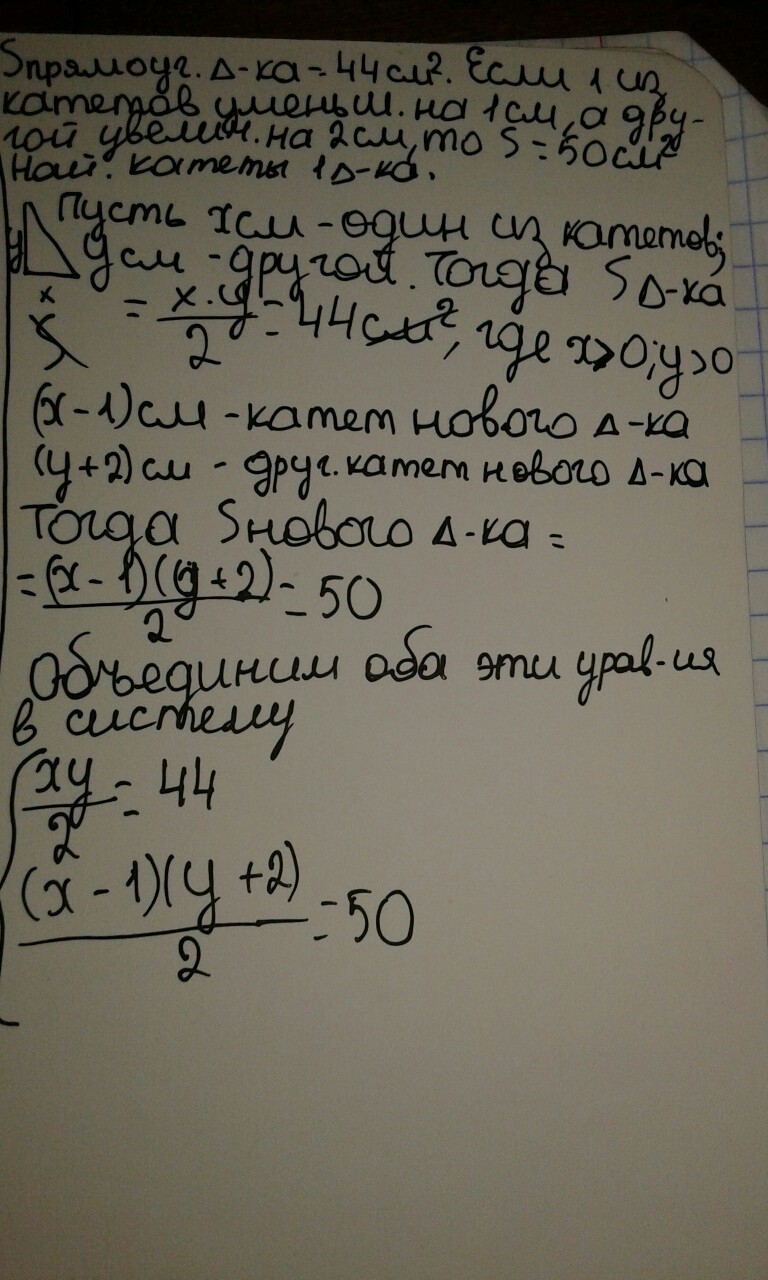 Sпрямоуг. Δ-ка = 44см². Если 1 из
катетов уменьш. на 1см, а дру-
гой увелич. на 2см, то S = 50см²
Найт. катеты 1 Δ-ка.
Пусть x см - один из катетов;
y см - другой. Тогда S Δ-ка
y
x
= x·y/2 = 44см², где x>0; y>0
(x-1)см - катет нового Δ-ка
(y+2)см - друг. катет нового Δ-ка
Тогда Sнового Δ-ка =
= (x-1)(y+2)/2 = 50
Объединим оба эти урав-ия
в систему
xy/2 = 44
(x-1)(y+2)/2 = 50